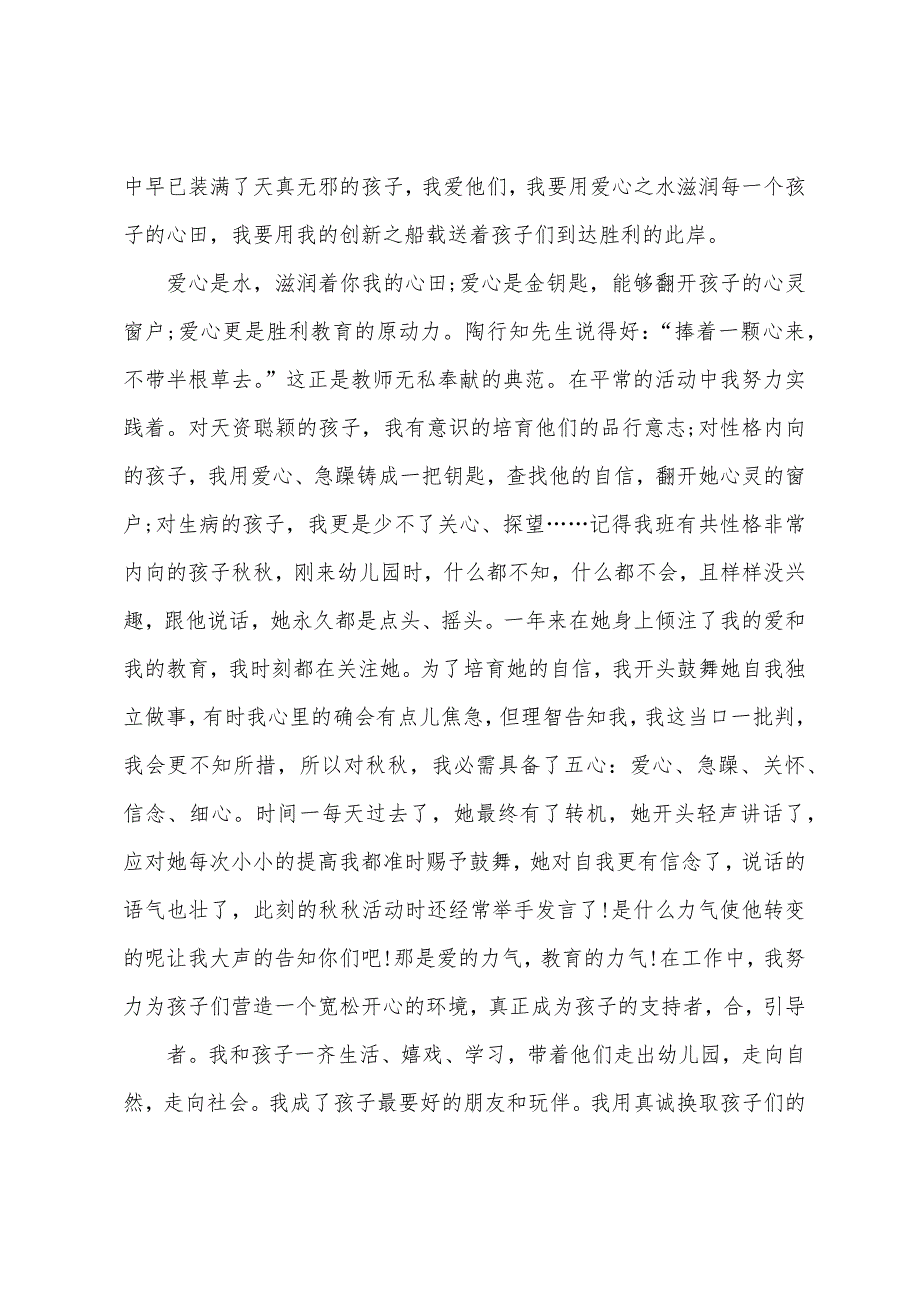 中早已装满了天真无邪的孩子，我爱他们，我要用爱心之水滋润每一个孩
子的心田，我要用我的创新之船载送着孩子们到达胜利的此岸。
爱心是水，滋润着你我的心田;爱心是金钥匙，能够翻开孩子的心灵
窗户;爱心更是胜利教育的原动力。陶行知先生说得好：“捧着一颗心来，
不带半根草去。”这正是教师无私奉献的典范。在平常的活动中我努力实
践着。对天资聪颖的孩子，我有意识的培育他们的品行意志;对性格内向
的孩子，我用爱心、急躁铸成一把钥匙，查找他的自信，翻开她心灵的窗
户;对生病的孩子，我更是少不了关心、探望……记得我班有共性格非常
内向的孩子秋秋，刚来幼儿园时，什么都不知，什么都不会，且样样没兴
趣，跟他说话，她永久都是点头、摇头。一年来在她身上倾注了我的爱和
我的教育，我时刻都在关注她。为了培育她的自信，我开头鼓舞她自我独
立做事，有时我心里的确会有点儿焦急，但理智告知我，我这当口一批判，
我会更不知所措，所以对秋秋，我必需具备了五心：爱心、急躁、关怀、
信念、细心。时间一每天过去了，她最终有了转机，她开头轻声讲话了，
应对她每次小小的提高我都准时赐予鼓舞，她对自我更有信念了，说话的
语气也壮了，此刻的秋秋活动时还经常举手发言了!是什么力气使他转变
的呢让我大声的告知你们吧!那是爱的力气，教育的力气!在工作中，我努
力为孩子们营造一个宽松开心的环境，真正成为孩子的支持者，合，引导
者。我和孩子一齐生活、嬉戏、学习，带着他们走出幼儿园，走向自
然，走向社会。我成了孩子最要好的朋友和玩伴。我用真诚换取孩子们的